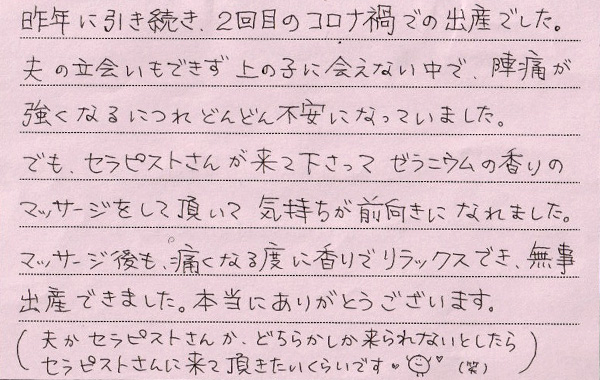 昨年に引き続き、2回目のコロナ禍での出産でした。
夫の立会いもできず上の子に会えない中で、陣痛が
強くなるにつれどんどん不安になっていました。
でも、セラピストさんが来て下さってゼラニウムの香りの
マッサージをして頂いて気持ちが前向きになれました。
マッサージ後も、痛くなる度に香りでリラックスでき、無事
出産できました。本当にありがとうございます。
(夫かセラピストさんか、どちらかしか来られないとしたら
セラピストさんに来て頂きたいくらいです♥♥(笑))